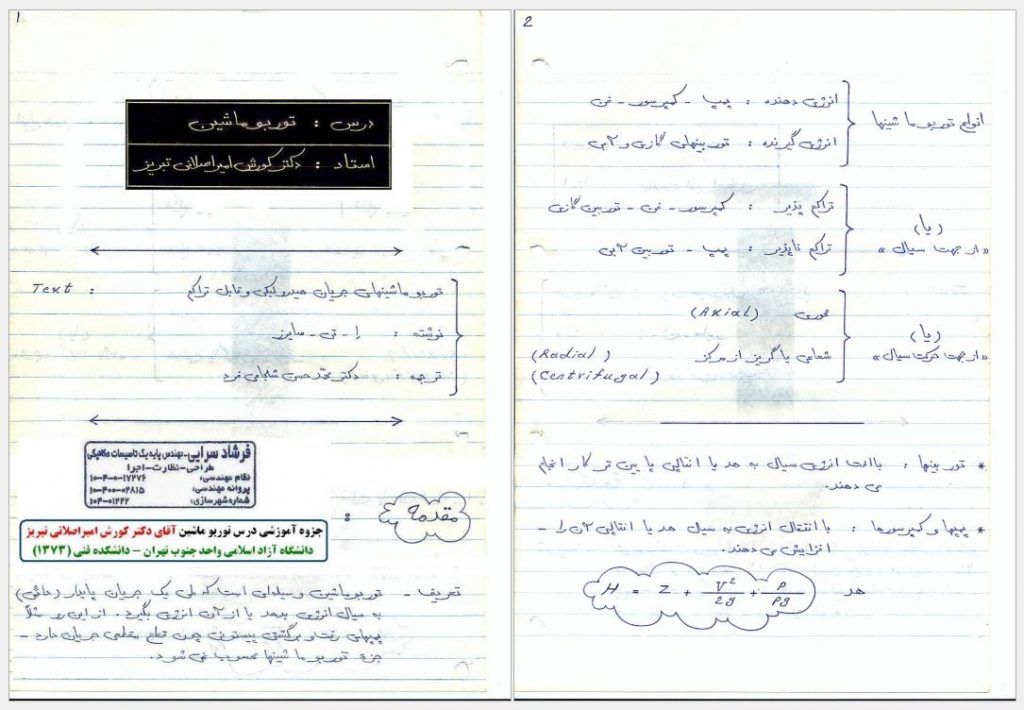 1
درس : توربو ماشین
استاد : دکتر کورش امیراصلانی تبریز
Text : توربو ماشینهای جریان هیدرولیکی و قابل تراکم
نوشته : اِ - تی - سایرز
ترجمه : دکتر محمد حسن شجاعی فرد
فرشاد سرایی-مهندس پایه یک تاسیسات مکانیکی
طراحی-نظارت-اجرا
نظام مهندسی: ۱۰-۴-۰-۱۷۲۷۶
پروانه مهندسی: ۱۰-۴۰۰-۰۲۸۱۵
شماره شهرسازی: ۱۰۴-۰۱۲۲۲
مقدمه :
جزوه آموزشی درس توربو ماشین آقای دکتر کورش امیراصلانی تبریز
دانشگاه آزاد اسلامی واحد جنوب تهران – دانشکده فنی (۱۳۷۳)
تعریف - توربوماشین وسیله‌ای است که طی یک جریان پایدار (دائمی)
به سیال انرژی بدهد یا از آن انرژی بگیرد. از این رو مثلاً
پمپهای رفت و برگشتی پیستونی چون قطع مقطعی جریان دارد -
جزء توربو ماشینها محسوب نمی شود.
2
انواع توربو ماشینها
انرژی دهنده : پمپ - کمپرسور - فن
انرژی گیرنده : توربینهای گازی و آبی
(یا)
«از جهت سیال»
تراکم پذیر : کمپرسور - فن - توربین گازی
تراکم ناپذیر : پمپ - توربین آبی
(یا)
«از جهت حرکت سیال»
محوری (Axial)
شعاعی یا گریز از مرکز (Radial)
(Centrifugal)
* توربینها : با افت انرژی سیال به هد یا انتالپی پایین تر کار انجام
می دهند.
* پمپها و کمپرسورها : با انتقال انرژی به سیال هد یا انتالپی آن را -
افزایش می دهند.
هد H = Z + V²/2g + P/ρg